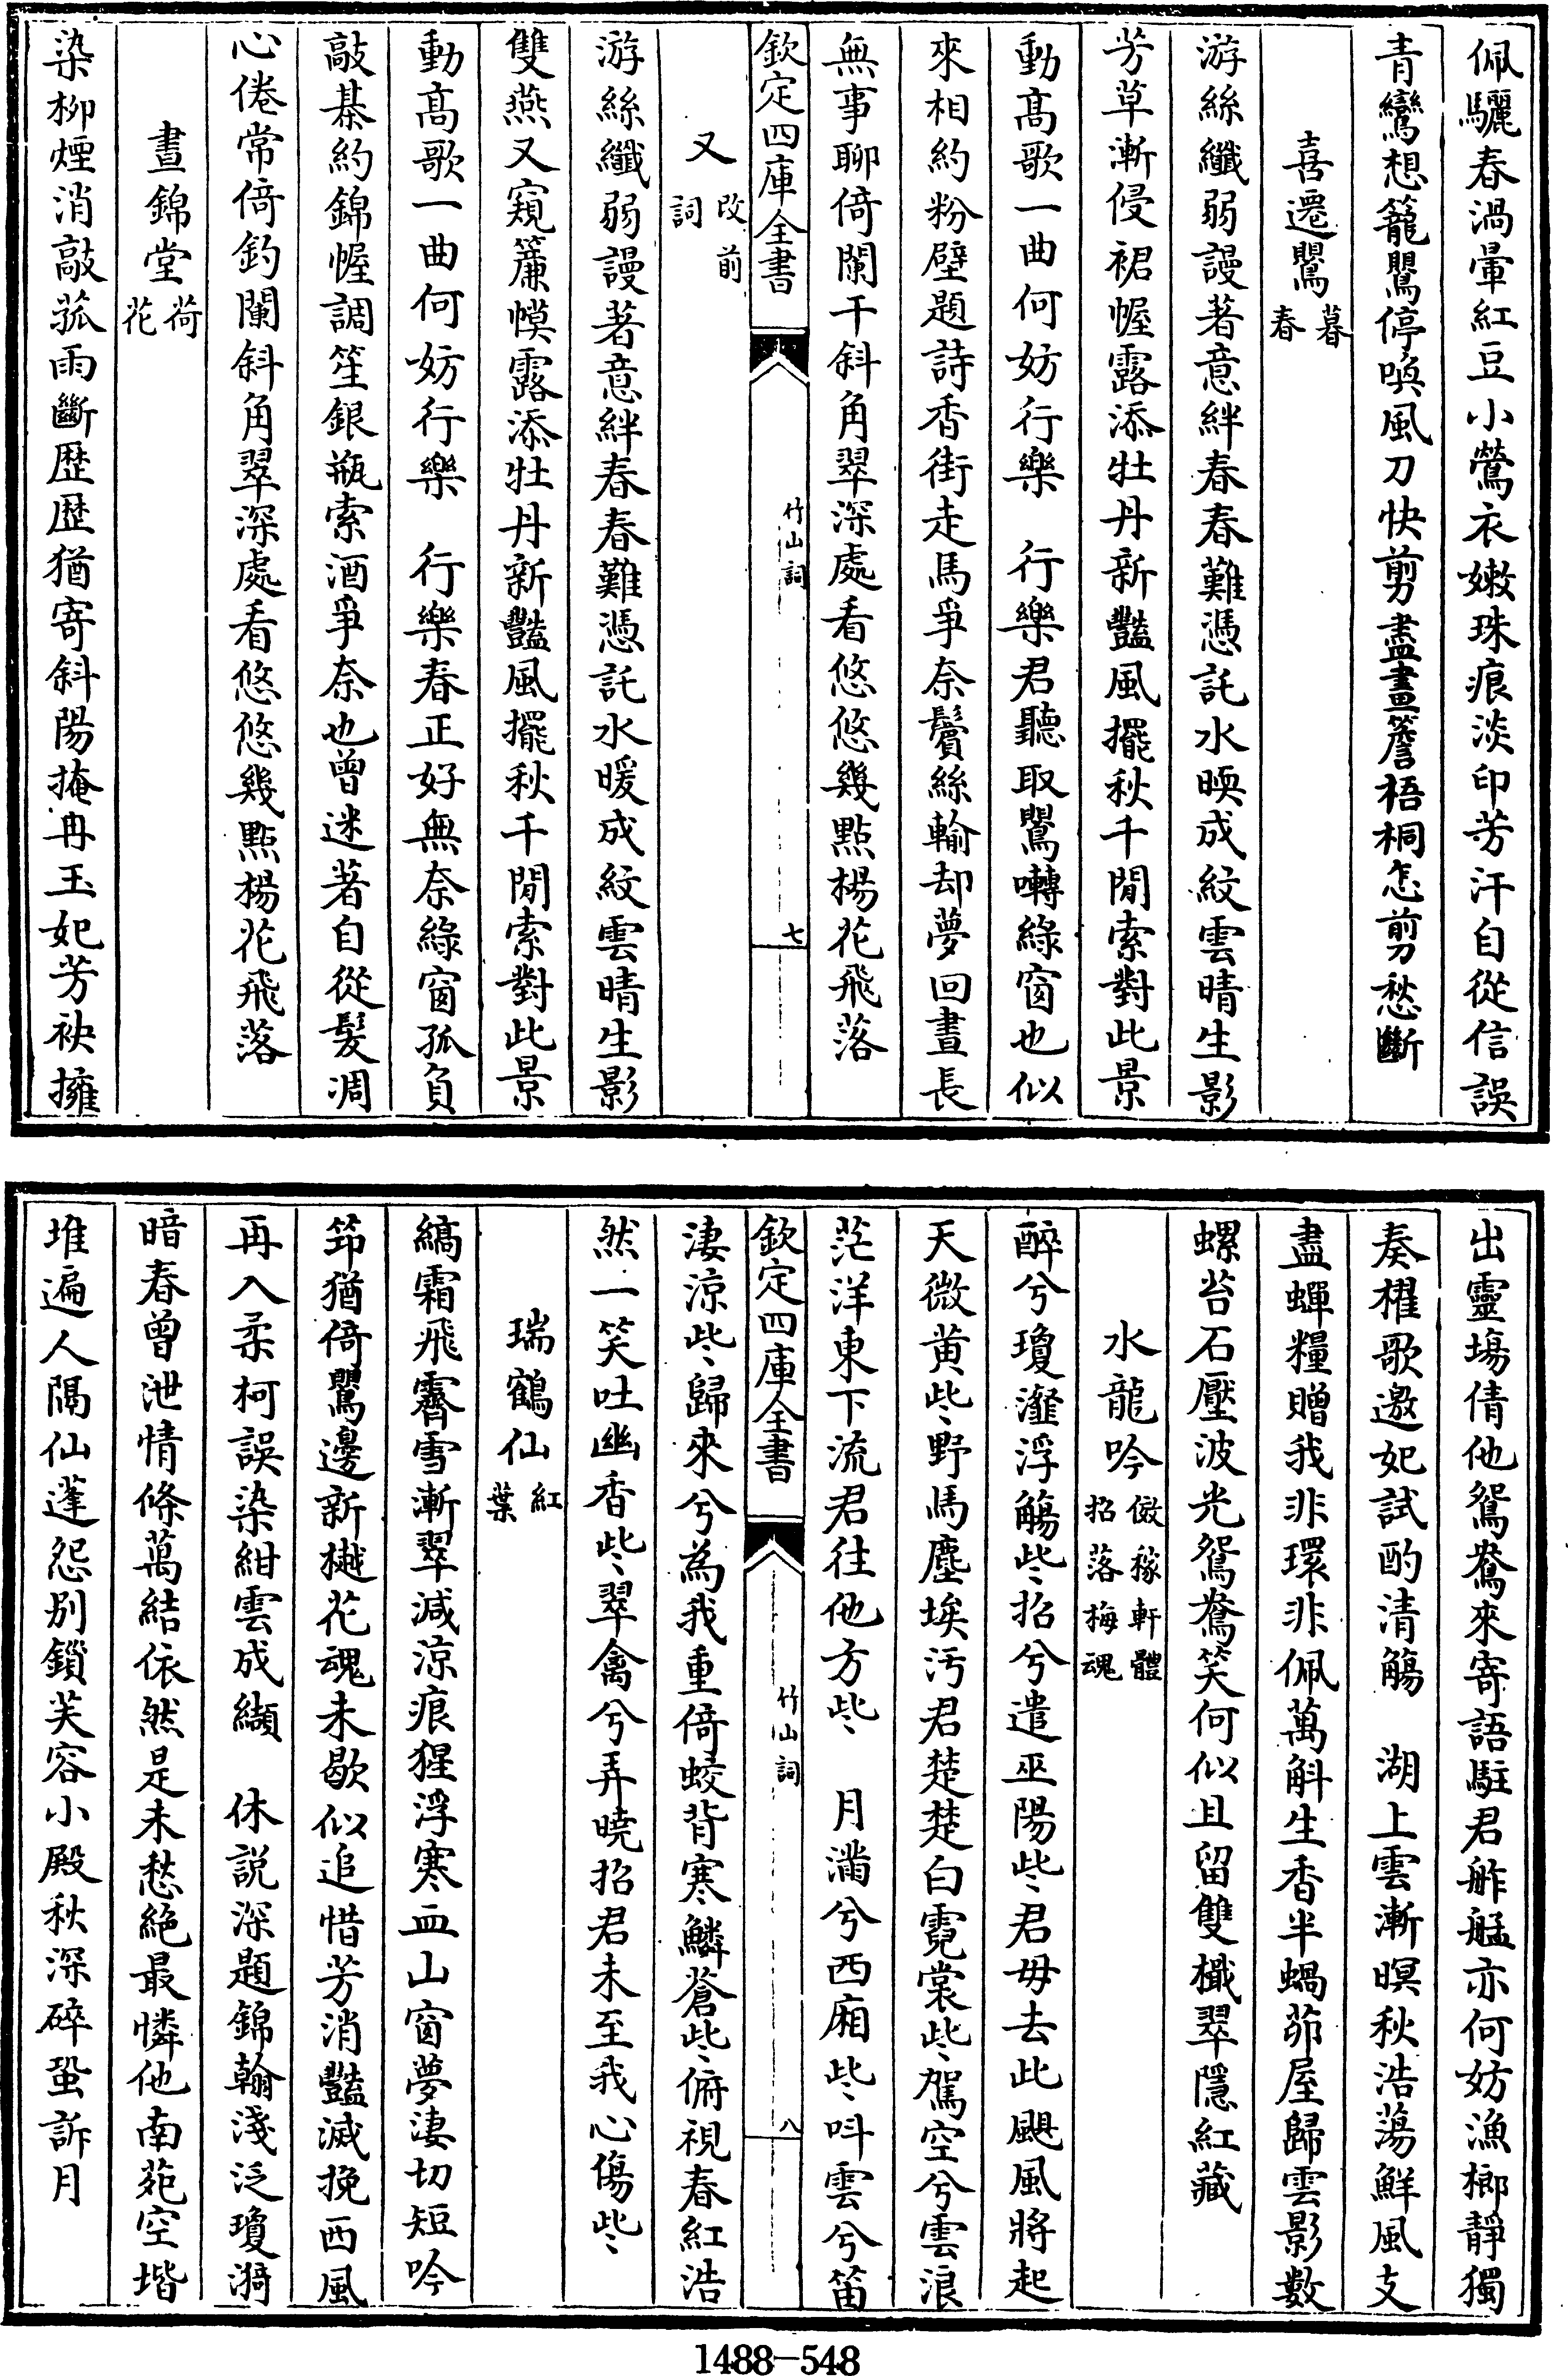 佩驪春渦暈紅豆小鶯衣嫩珠痕淡印芳汗自從信誤
青鸞想籠鸎停喚風刀快剪盡畫簷梧桐怎剪愁斷
喜遷鸎暮春
游絲纖弱謾著意絆春春難憑託水暎成紋雲晴生影
芳草漸侵裙幄露添牡丹新豔風擺秋千閒索對此景
動高歌一曲何妨行樂　行樂君聽取鸎囀綠窗也似
來相約粉壁題詩香街走馬爭奈鬢絲輸却夢回晝長
無事聊倚闌干斜角翠深處看悠悠幾點楊花飛落
欽定四庫全書　竹山詞　七
又改前詞
游絲纖弱謾著意絆春春難憑託水暖成紋雲晴生影
雙燕又窺簾幙露添牡丹新豔風擺秋千閒索對此景
動高歌一曲何妨行樂　行樂春正好無奈綠窗孤負
敲棊約錦幄調笙銀瓶索酒爭奈也曾迷著自從髮凋
心倦常倚釣闌斜角翠深處看悠悠幾點楊花飛落
晝錦堂荷花
染柳煙消敲菰雨斷歴歴猶寄斜陽掩冉玉妃芳袂擁
出靈塲倩他鴛鴦來寄語駐君舴艋亦何妨漁榔靜獨
奏櫂歌邀妃試酌清觴　湖上雲漸暝秋浩蕩鮮風支
盡蟬糧贈我非環非佩萬斛生香半蝸茆屋歸雲影數
螺苔石壓波光鴛鴦笑何似且留雙檝翠隱紅藏
水龍吟倣稼軒體招落梅魂
醉兮瓊瀣浮觴些招兮遣巫陽些君毋去此颶風將起
天微黄些野馬塵埃汚君楚楚白霓裳些駕空兮雲浪
茫洋東下流君往他方些　月滿兮西廂些呌雲兮笛
欽定四庫全書　竹山詞　八
淒涼些歸來兮為我重倚蛟背寒鱗蒼些俯視春紅浩
然一笑吐幽香些翠禽兮弄曉招君未至我心傷些
瑞鶴仙紅葉
縞霜飛霽雪漸翠減涼痕猩浮寒血山窗夢淒切短吟
笻猶倚鸎邊新樾花魂未歇似追惜芳消豔滅挽西風
再入柔柯誤染紺雲成纈　休説深題錦翰淺泛瓊漪
暗春曾泄情條萬結依然是未愁絶最憐他南苑空堦
堆遍人隔仙蓬怨別鎖芙容小殿秋深碎蛩訴月
1488—548